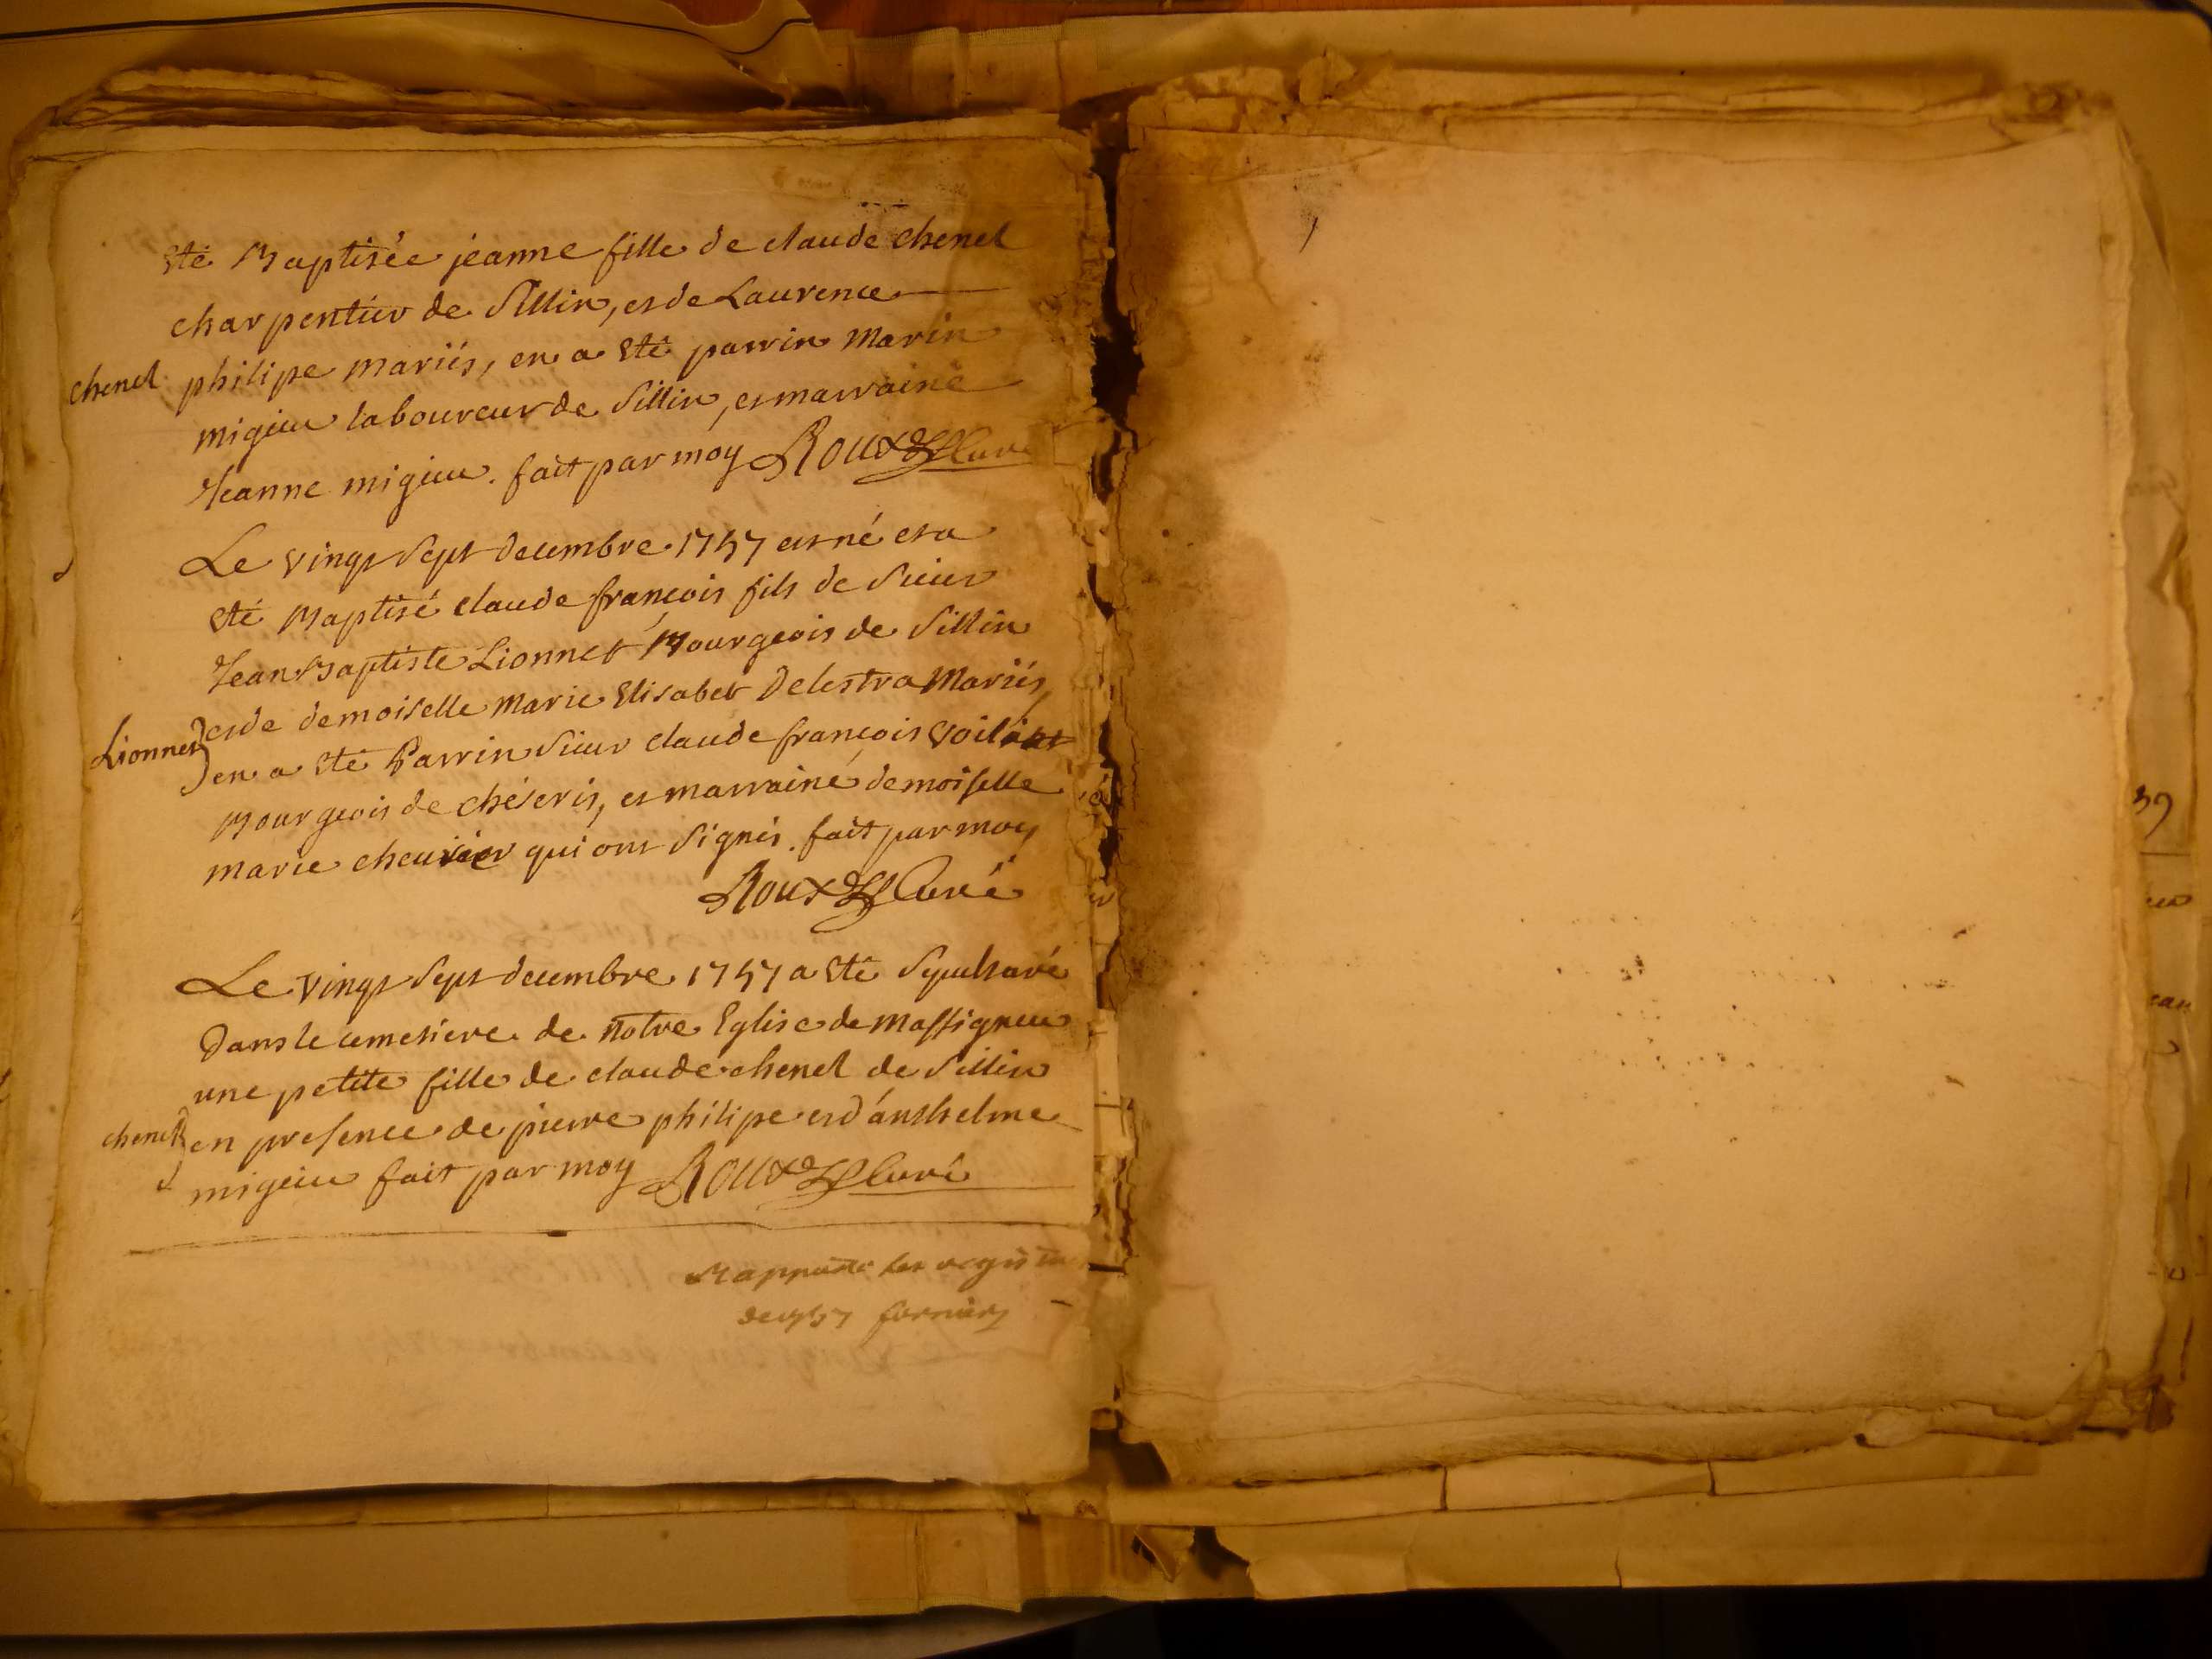 été Baptisée jeanne fille de claude chenel
charpentier de Sillin, et de Laurence
chenel
philipe mariés, en a été parrin Marin
migieu laboureur de Sillin, et marraine
Jeanne migieu. fait par moy Roux Curé
Le vingt Sept decembre 1757 est né et a
été Baptisé claude françois fils de Sieur
Jean Baptiste Lionnet Bourgeois de Sillin
et de demoiselle Marie Elisabet Delestra Mariés,
Lionnet
en a été Parrin Sieur claude françois
Bourgeois de chéseris, et marraine demoiselle
marie qui ont Signés. fait par moy
Roux Curé
Le vingt Sept decembre 1757 a été Sepulturé
Dans le cemetiere de notre Eglise de Massigneu
une petite fille de claude chenel de Sillin
chenel
en presence de pierre philipe et d'anthelme
migieu fait par moy Roux Curé
de 1757
39